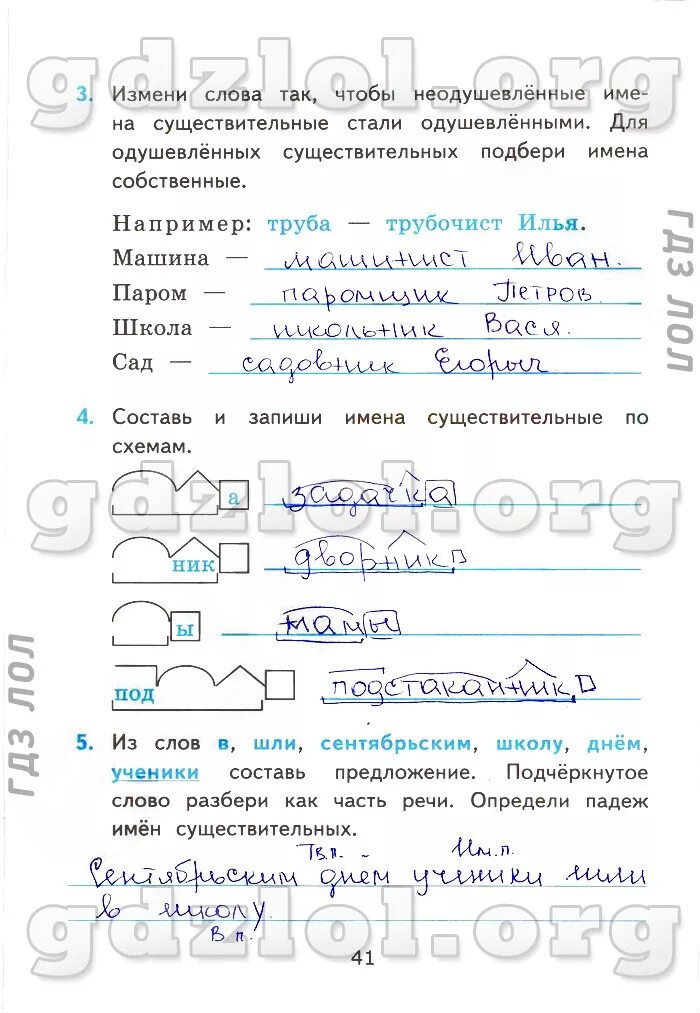 gdzlol.org
3. Измени слова так, чтобы неодушевлённые име-
на существительные стали одушевлёнными. Для
одушевлённых существительных подбери имена
собственные.
Например: труба — трубочист Илья.
Машина — машинист Иван.
Паром — паромщик Петров.
Школа — школьник Вася.
Сад — садовник Егорыч
гдз лол
4. Составь и запиши имена существительные по
схемам.
а задачка
gdzlol.org
ник дворник
ы мамы
под подстаканник
гдз лол
5. Из слов в, шли, сентябрьским, школу, днём,
ученики составь предложение. Подчёркнутое
слово разбери как часть речи. Определи падеж
имён существительных.
Тв.п. Им.п.
Сентябрьским днём ученики шли
в школу.
В.п.
gdzlol.org
41